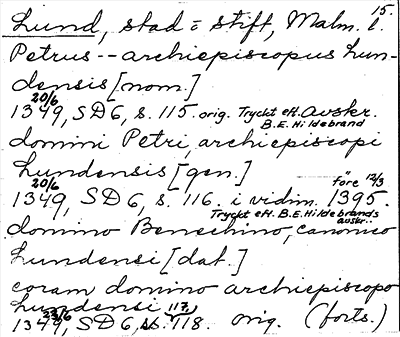 15.
Lund, stad o stift, Malm. l.
Petrus -- archiepiscopus Lun-
densis [nom.]
20/6
1349, SD 6, s. 115. orig. Tryckt eft. Avskr.
B.E. Hildebrand
domini Petri, archiepiscopi
Lundensis [gen.]
20/6 före 12/3
1349, SD 6, s. 116. i vidim. 1395.
Tryckt eft. B.E. Hildebrands
avskr.
domino Benechino, canonico
Lundensi [dat.]
coram domino archiepiscopo
Lundensi
23/6 117,
1349, SD 6, s. 118. orig. (forts.)